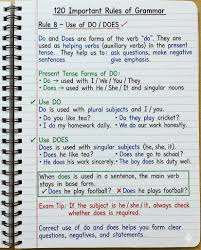 120 Important Rules of Grammar
Rule 8 – Use of DO / DOES
Do and Does are forms of the verb "do". They are
used as helping verbs (auxiliary verbs) in the present
tense. They help us to ask questions, make negative
sentences and give emphasis.
Present Tense Forms of DO:
• Do → used with I / We / You / They
• Does → used with He / She / It
Use DO
Do is used with plural subjects and I / you.
• Do you like tea? • Do they play cricket?
• I do my homework daily. • We do our work honestly.
Use DOES
Does is used with singular subjects (he, she, it).
• Does he like tea? • Does she go to school?
• He does his work sincerely. • The boy does his duty well.
When does is used in a sentence, the main verb
stays in base form.
✓ Does he play football? ✗ Does he plays football?
Exam Tip: If the subject is he/she/it, always check
whether does is required.
Correct use of do and does helps you form clear
questions, negatives, and statements.